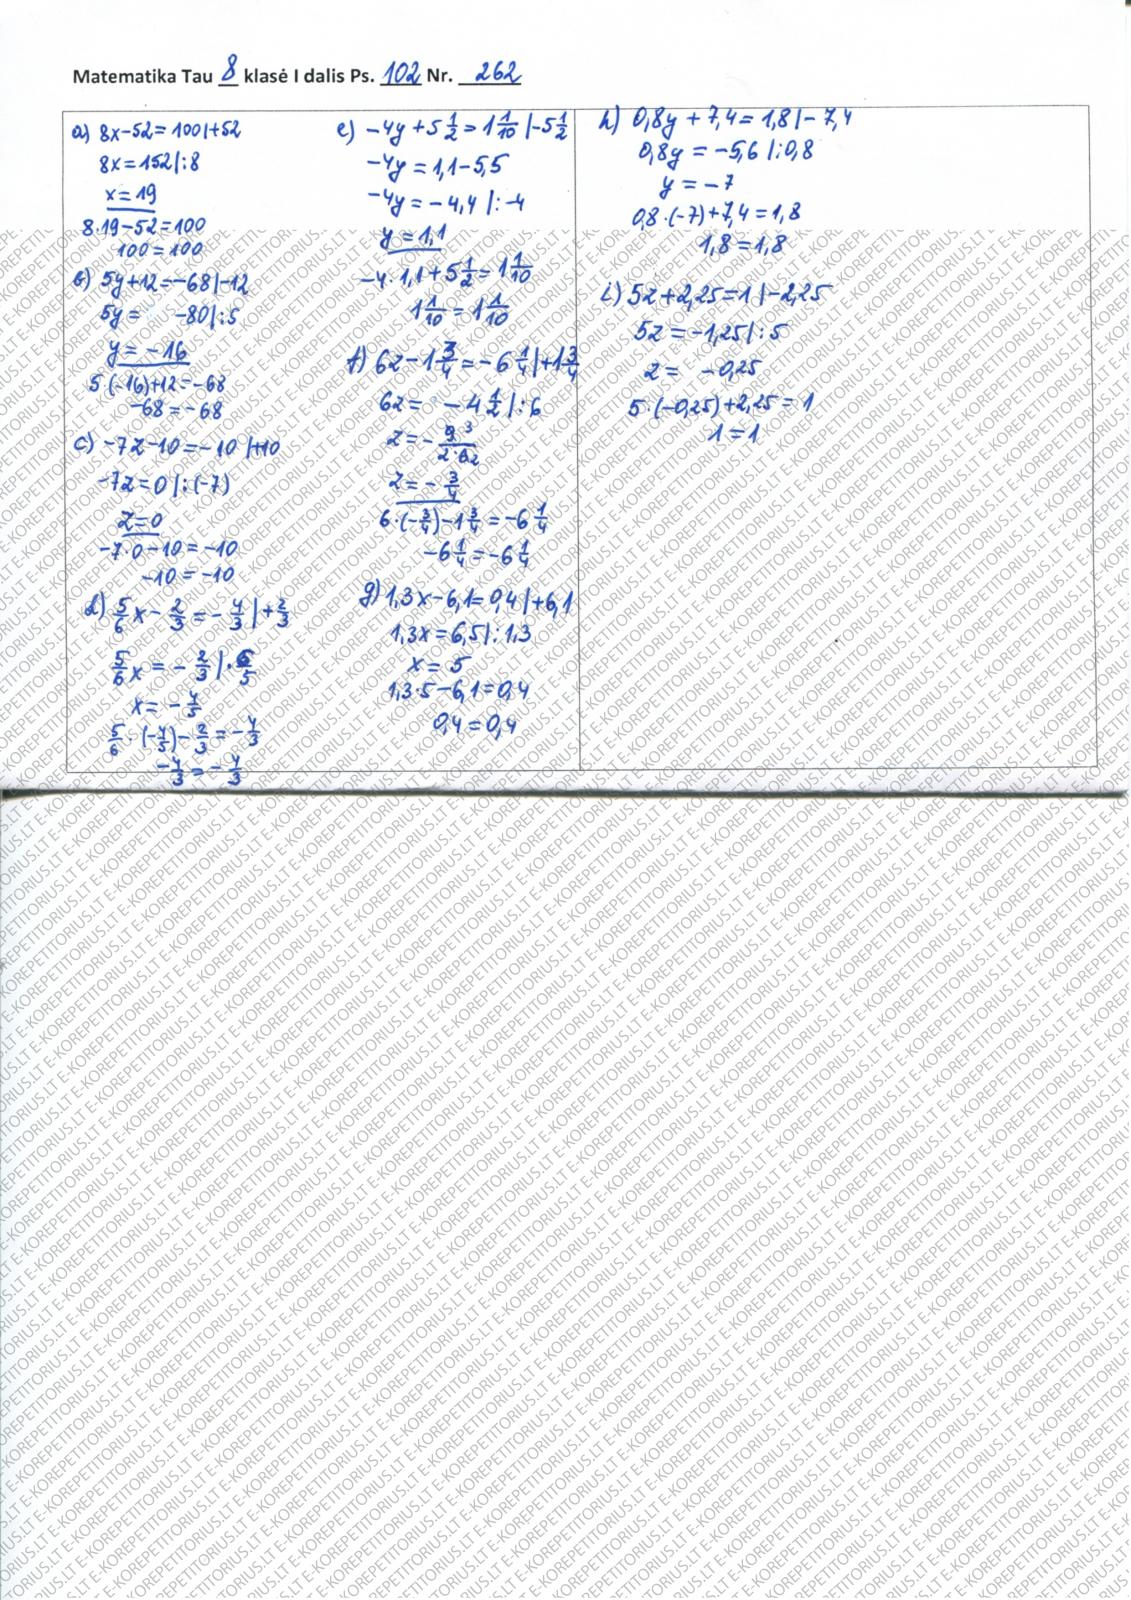 Matematika Tau 8 klasė I dalis Ps. 102 Nr. 262
a) 8x-52=100|+52
8x=152|:8
x=19
8·19-52=100
100=100
b) 5y+12=-68|-12
5y= -80|:5
y=-16
5·(-16)+12=-68
-68=-68
c) -7z-10=-10|+10
-7z=0|:(-7)
z=0
-7·0-10=-10
-10=-10
d) 5/6 x - 2/3 = -4/3 |+2/3
5/6 x = -2/3 |·6/5
x= -4/5
5/6·(-4/5)-2/3=-4/3
-4/3=-4/3
e) -4y+5 1/2=1 1/10 |-5 1/2
-4y=1,1-5,5
-4y=-4,4|:-4
y=1,1
-4·1,1+5 1/2=1 1/10
1 1/10=1 1/10
f) 6z-1 3/4=-6 1/4|+1 3/4
6z= -4 1/2|:6
z=-9 3/2·6 2
z=-3/4
6·(-3/4)-1 3/4=-6 1/4
-6 1/4=-6 1/4
g) 1,3x-6,1=0,4|+6,1
1,3x=6,5|:1,3
x=5
1,3·5-6,1=0,4
0,4=0,4
h) 0,8y+7,4=1,8|-7,4
0,8y=-5,6|:0,8
y=-7
0,8·(-7)+7,4=1,8
1,8=1,8
i) 5z+2,25=1|-2,25
5z=-1,25|:5
z= -0,25
5·(-0,25)+2,25=1
1=1
E-KOREPETITORIUS.LT